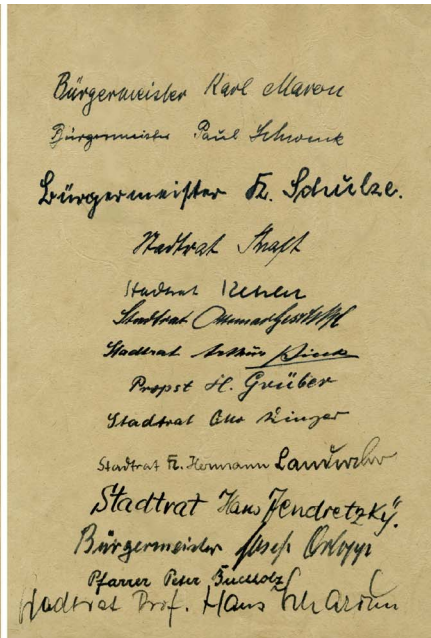 Bürgermeister Karl Maron
Bürgermeister Paul Schwenk
Bürgermeister Fr. Schulze.
Stadtrat Kraft
Stadtrat
Stadtrat
Stadtrat Arthur Pieck
Propst H. Grüber
Stadtrat Otto Winzer
Stadtrat Fr. Hermann Landwehr
Stadtrat Hans Jendretzky.
Bürgermeister Josef Orlopp
Pfarrer Peter Buchholz
Stadtrat Prof. Hans Scharoun